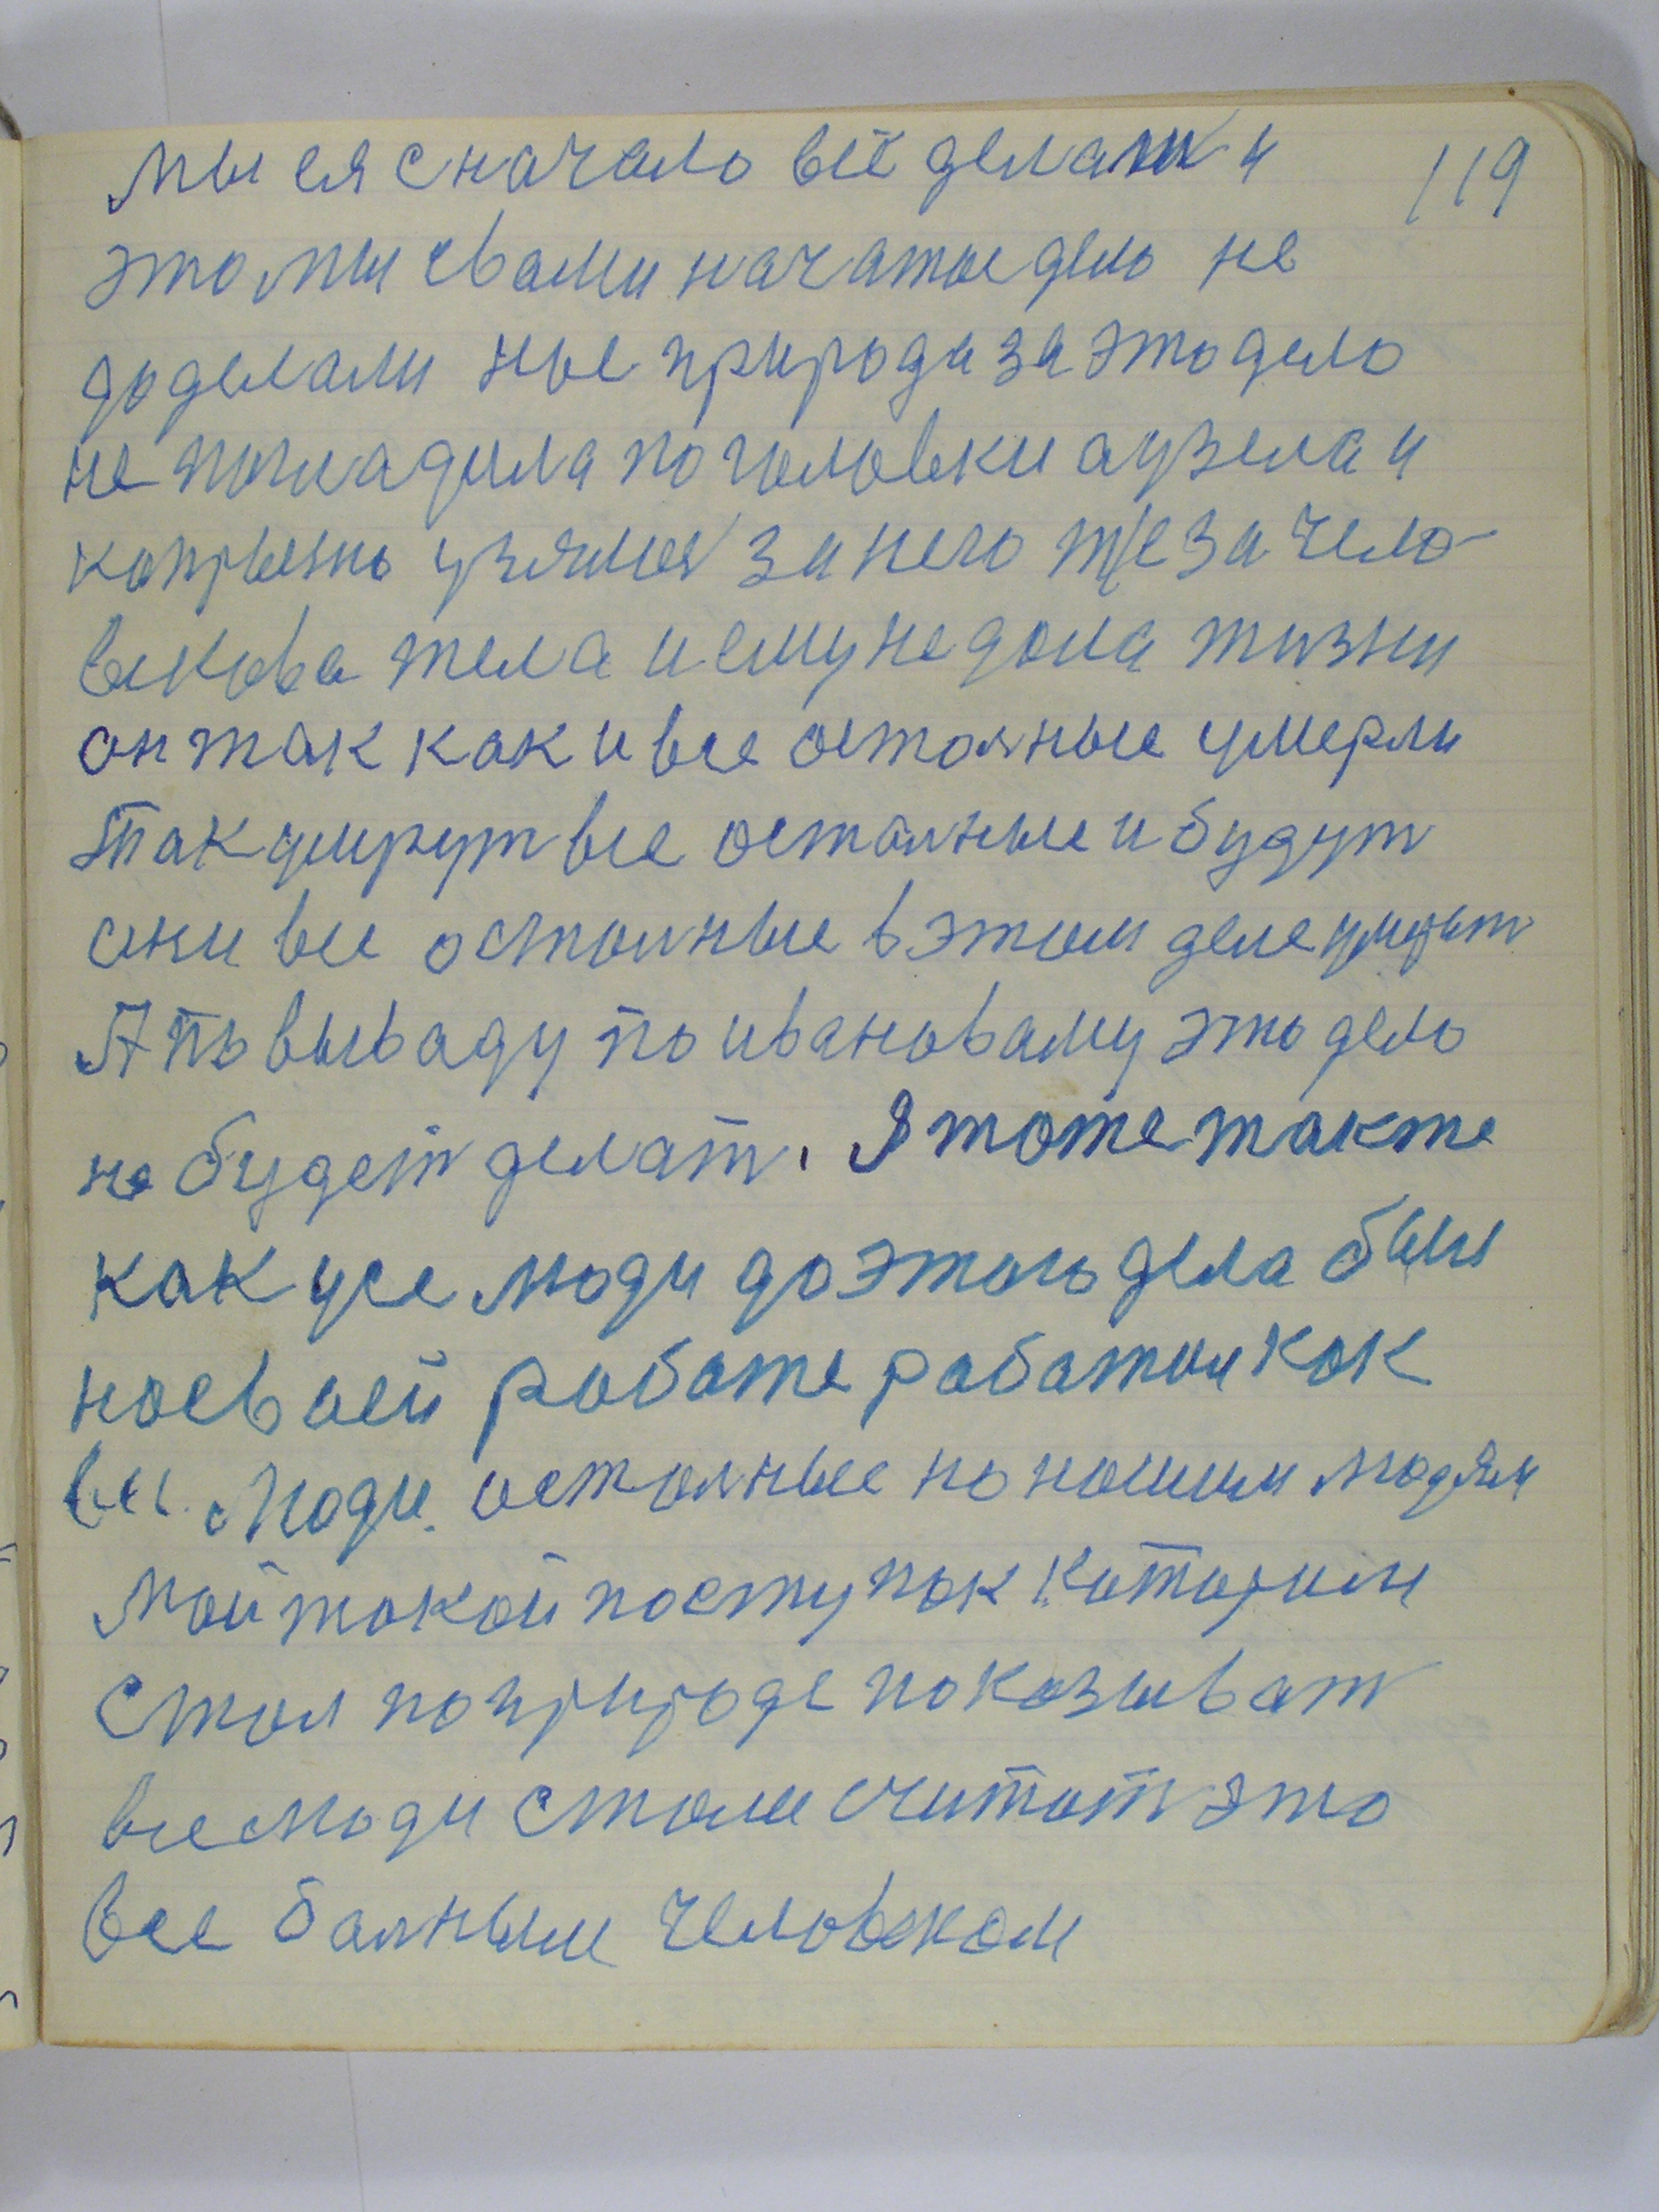 119
мы ея сначало всё делали и
это мы свами начатое дело не
доделали нас природа за это дело
не погладила по головки а узела и
узялися за него за чело-
векова тела и ему не дала жизни
он так как и все осталные умерли
Так умирут все осталные и будут
они все осталные в этом деле умират
А по вываду по ивановаму это дело
не будет делат. Я тоже также
как усе люди до этого дела был
на своей работе работал как
все люди осталные но нашим людям
мой такой поступок каторим
стал по природе показыват
все люди стали считат это
все балным человеком